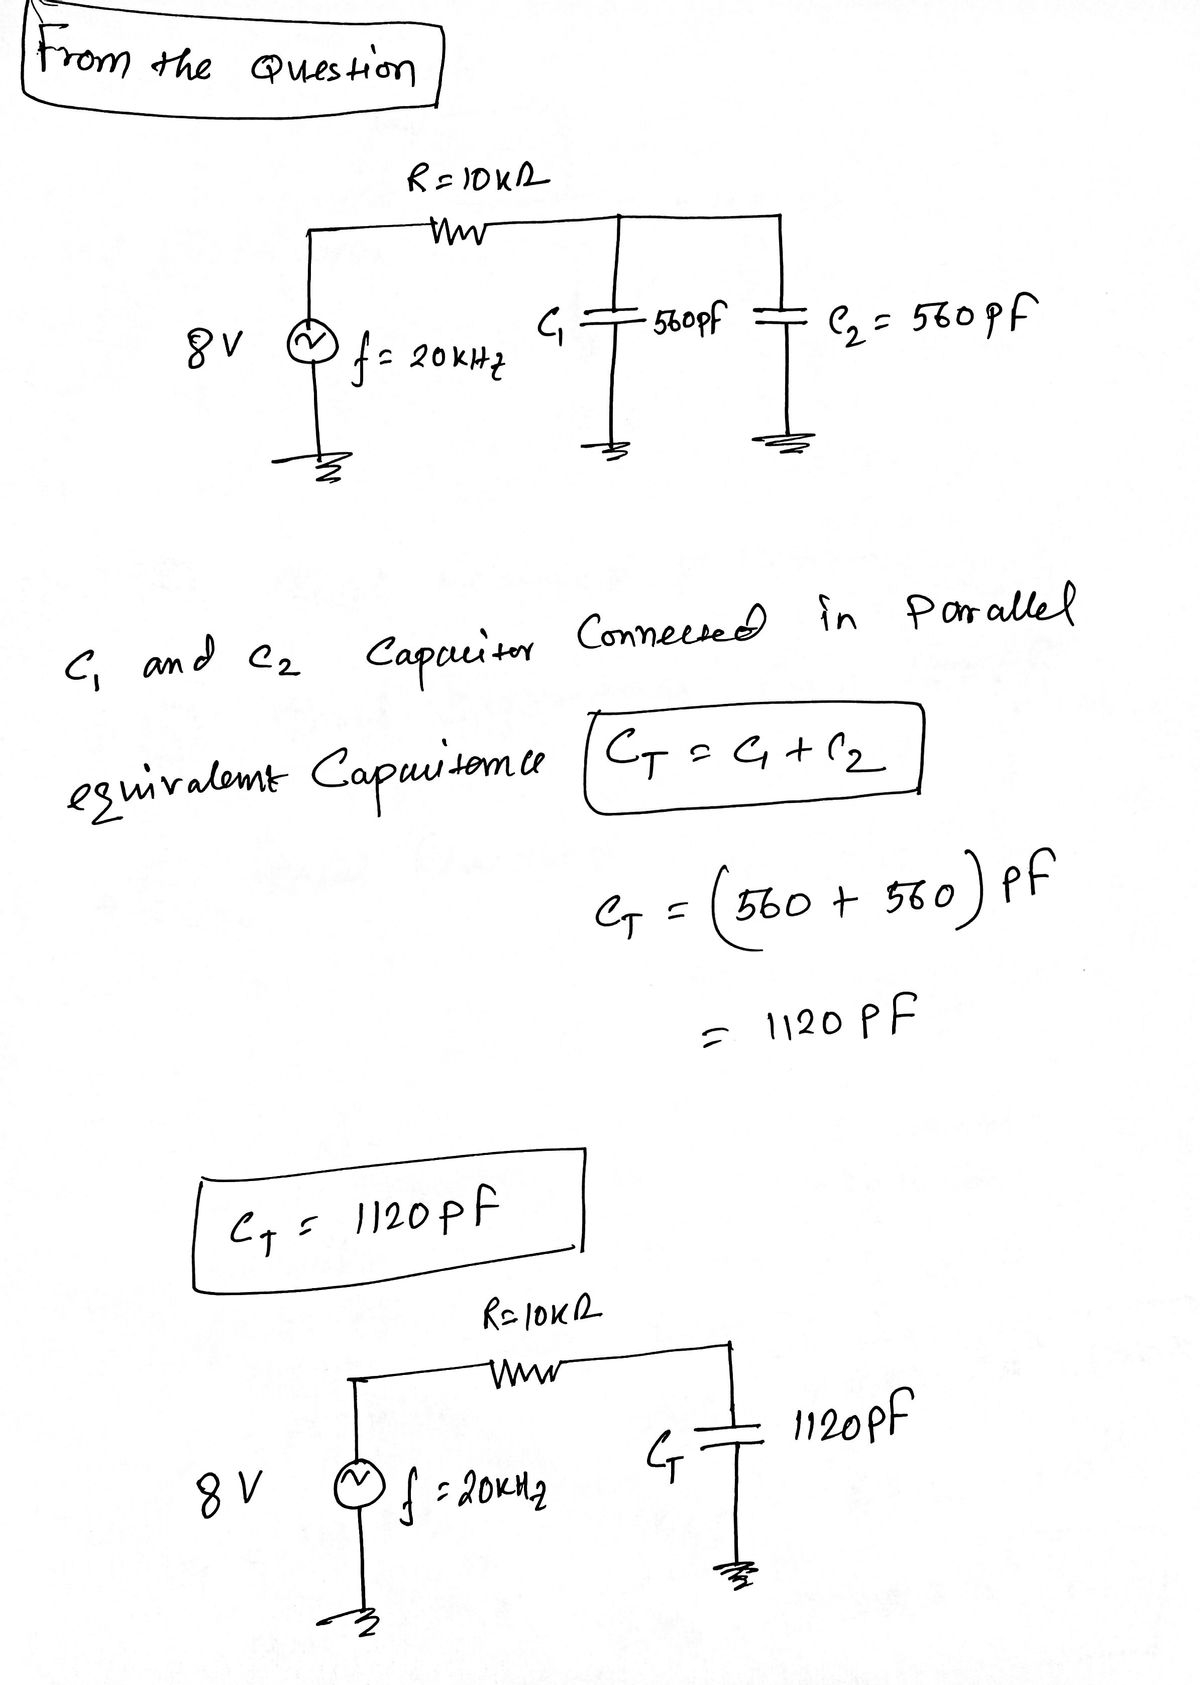 From the Question
R = 10KΩ
8V
f = 20KHz
C1
560pf
C2 = 560pf
C1 and C2 Capacitor Connected in Parallel
equivalent Capacitance CT = C1 + C2
CT = (560 + 560) pf
= 1120 PF
CT = 1120pf
R = 10KΩ
8V
f = 20KHz
CT
1120pf